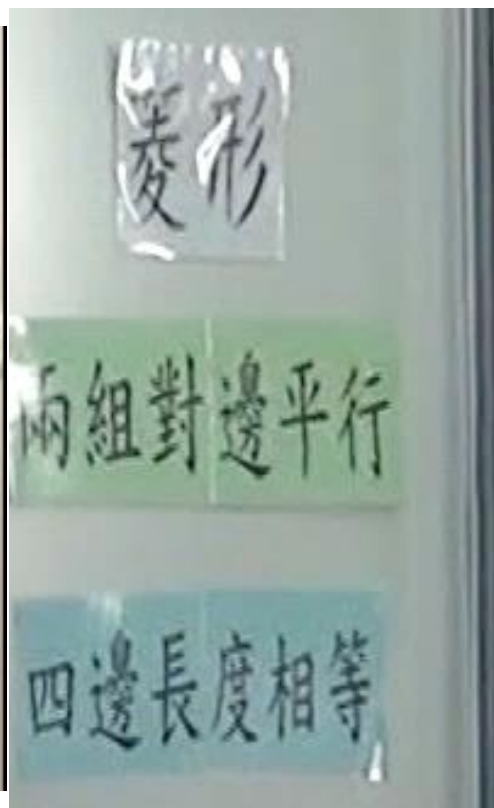 菱形
兩組對邊平行
四邊長度相等